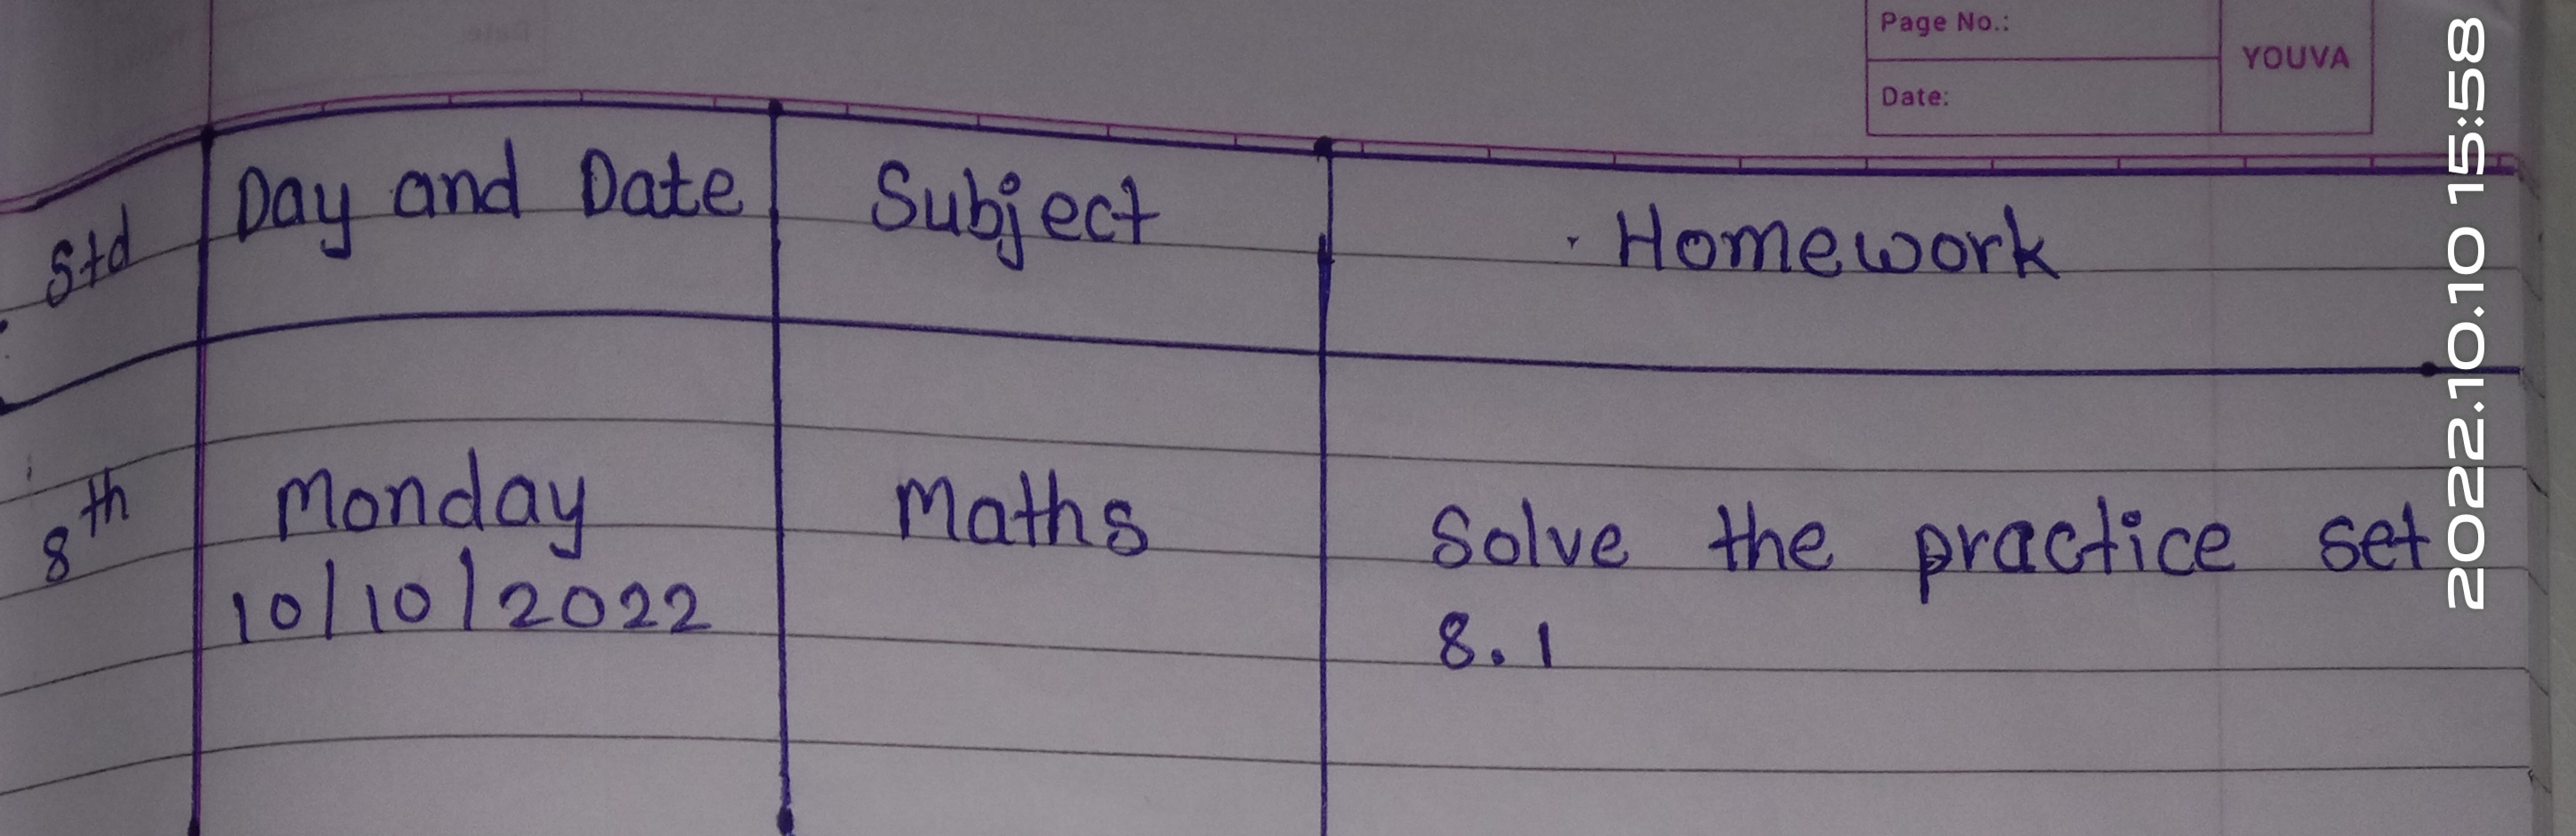 Page No.:
YOUVA
Date:
Std Day and Date Subject Homework
8th Monday Maths Solve the practice set
10/10/2022 8.1
2022.10.10 15:58